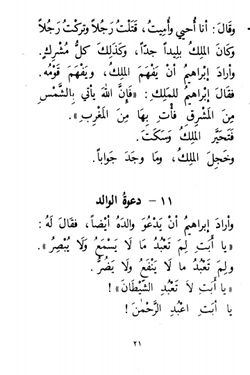 وقَالَ: أنا أُحيي وأُمِيتُ، قَتَلْتُ رَجُلاً وتركْتُ رَجُلاً
وكَانَ المَلِكُ بَلِيداً جدّاً، وَكَذَلِكَ كلُّ مُشْرِكٍ.
وأَرادَ إبْراهيمُ أنْ يَفْهَمَ المَلِكُ، ويَفْهَمَ قَوْمُه.
فقَالَ إبْراهِيمُ لِلمَلِكِ: «فإِنَّ اللهَ يأتي بِالشَّمْسِ
مِنَ المَشْرِقِ فَأْتِ بِهَا مِنَ المَغْرِبِ».
فَتَحَيَّرَ المَلِكُ وسَكَتَ.
وخَجِلَ المَلِكُ، ومَا وجَدَ جَوَاباً.
١١ - دعوةُ الوالد
وأرادَ إبراهيمُ أنْ يَدْعُوَ والدَهُ أيْضاً، فقَالَ لَهُ:
«يا أَبَتِ لِمَ تَعْبُدُ مَا لَا يَسْمَعُ وَلَا يُبْصِرُ»
ولِمَ تَعْبُدُ مَا لَا يَنْفَعُ ولَا يَضُرُّ.
«يا أبَتِ لَا تَعْبُدِ الشَّيْطَانَ»!
يا أبَتِ اعْبُدِ الرَّحْمنَ!
٢١